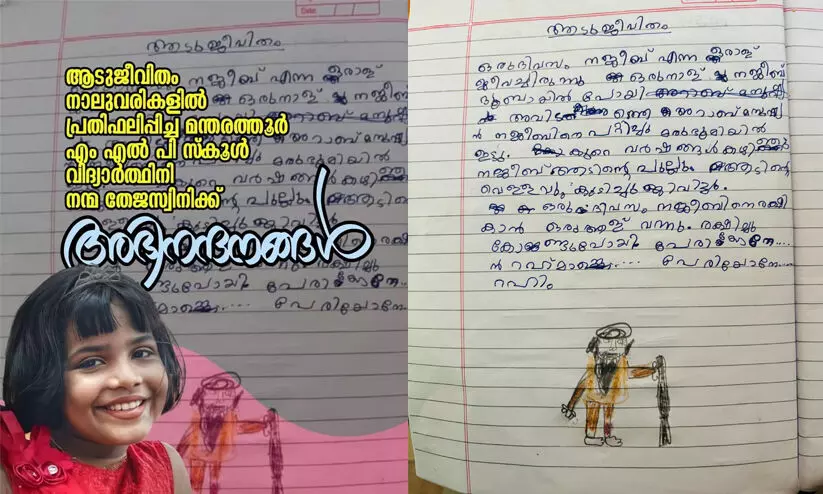 Date:
ആടുജീവിതം
ആടുജീവിതം
നാലുവരികളിൽ
പ്രതിഫലിപ്പിച്ച മന്തരത്തൂർ
എം എൽ പി സ്കൂൾ
വിദ്യാർത്ഥിനി
നന്മ തേജസ്വിനിക്ക്
അഭിനന്ദനങ്ങൾ
ആടുജീവിതം
ഒരുദിവസം നജീബ് എന്ന ഒരാള്
ജീവിച്ചിരുന്നു ഒരുനാള് നജീബ്
ദുബായിൽ പോയി
അവിടത്തെ അറാബ് മനുഷ്യ
ൻ നജീബിനെ പറ്റിച്ചു മരുഭൂമിയിൽ
ഇട്ടു. കുറെ വർഷങ്ങൾ കഴിഞ്ഞു
നജീബ് ആടിന്റെ പുല്ലും ആട്ടിന്റെ
വെള്ളവും കുടിച്ചു ജീവിച്ചു.
ഒരു ദിവസം നജീബിനെ രക്ഷി
കാൻ ഒരു ആള് വന്നു. രക്ഷിച്ചു
കോണ്ടുപോയി. പേരിയോനേ....
ൻ റഹ്മാനെ..... പെരിയോനേ..
റഹിം